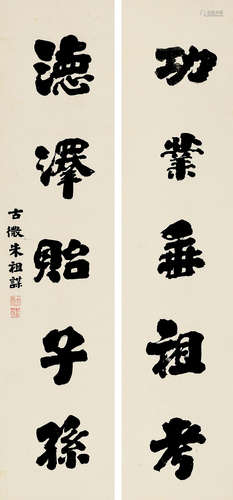 功業垂祖考
德澤貽子孫
古微朱祖謀